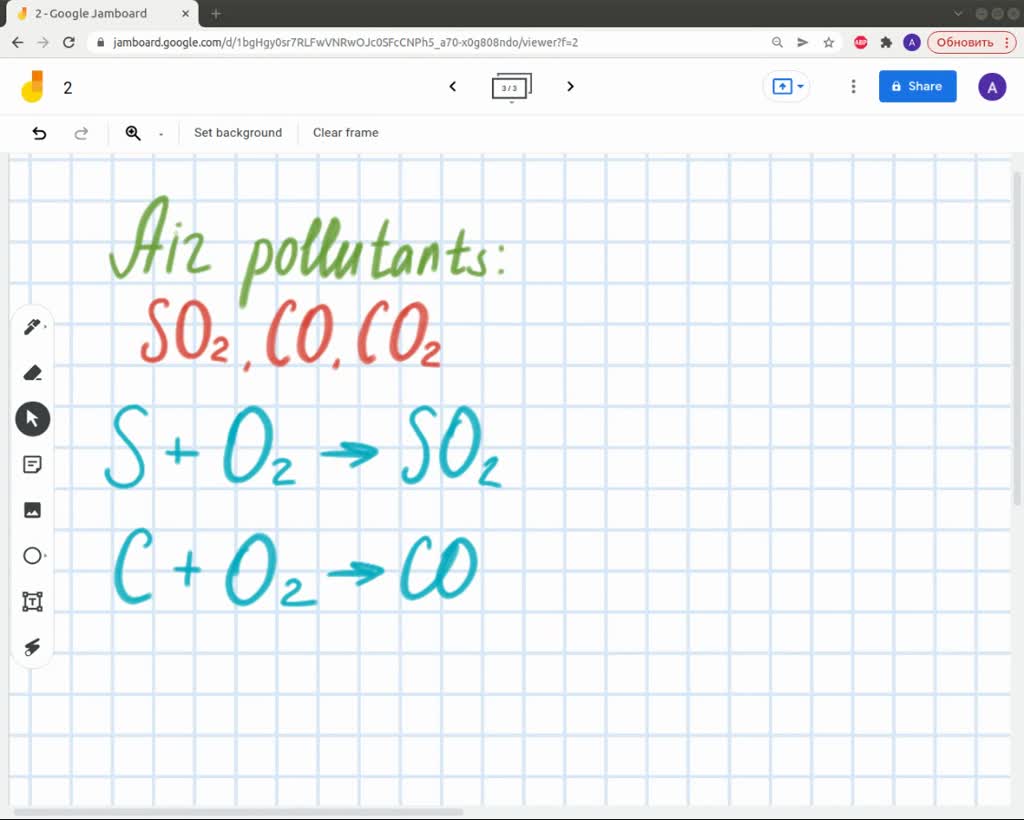 2 - Google Jamboard
jamboard.google.com/d/1bgHgy0sr7RLFwVNRwOJc0SFcCNPh5_a70-x0g808ndo/viewer?f=2
ABP
A
Обновить
2
3 / 3
Share
A
Set background
Clear frame
Air pollutants:
SO₂, CO, CO₂
S + O₂ → SO₂
C + O₂ → CO